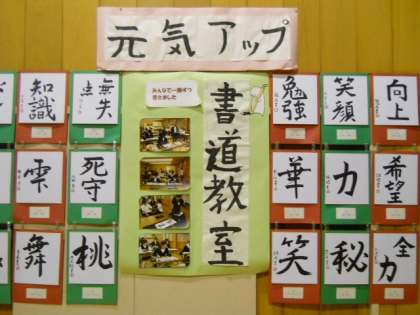 元気アップ
書道教室
みんなで一筆ずつ
書きました
向上
笑顔
勉強
無失点
知識
希望
力
華
死守
雫
全力
秘
笑
桃
舞